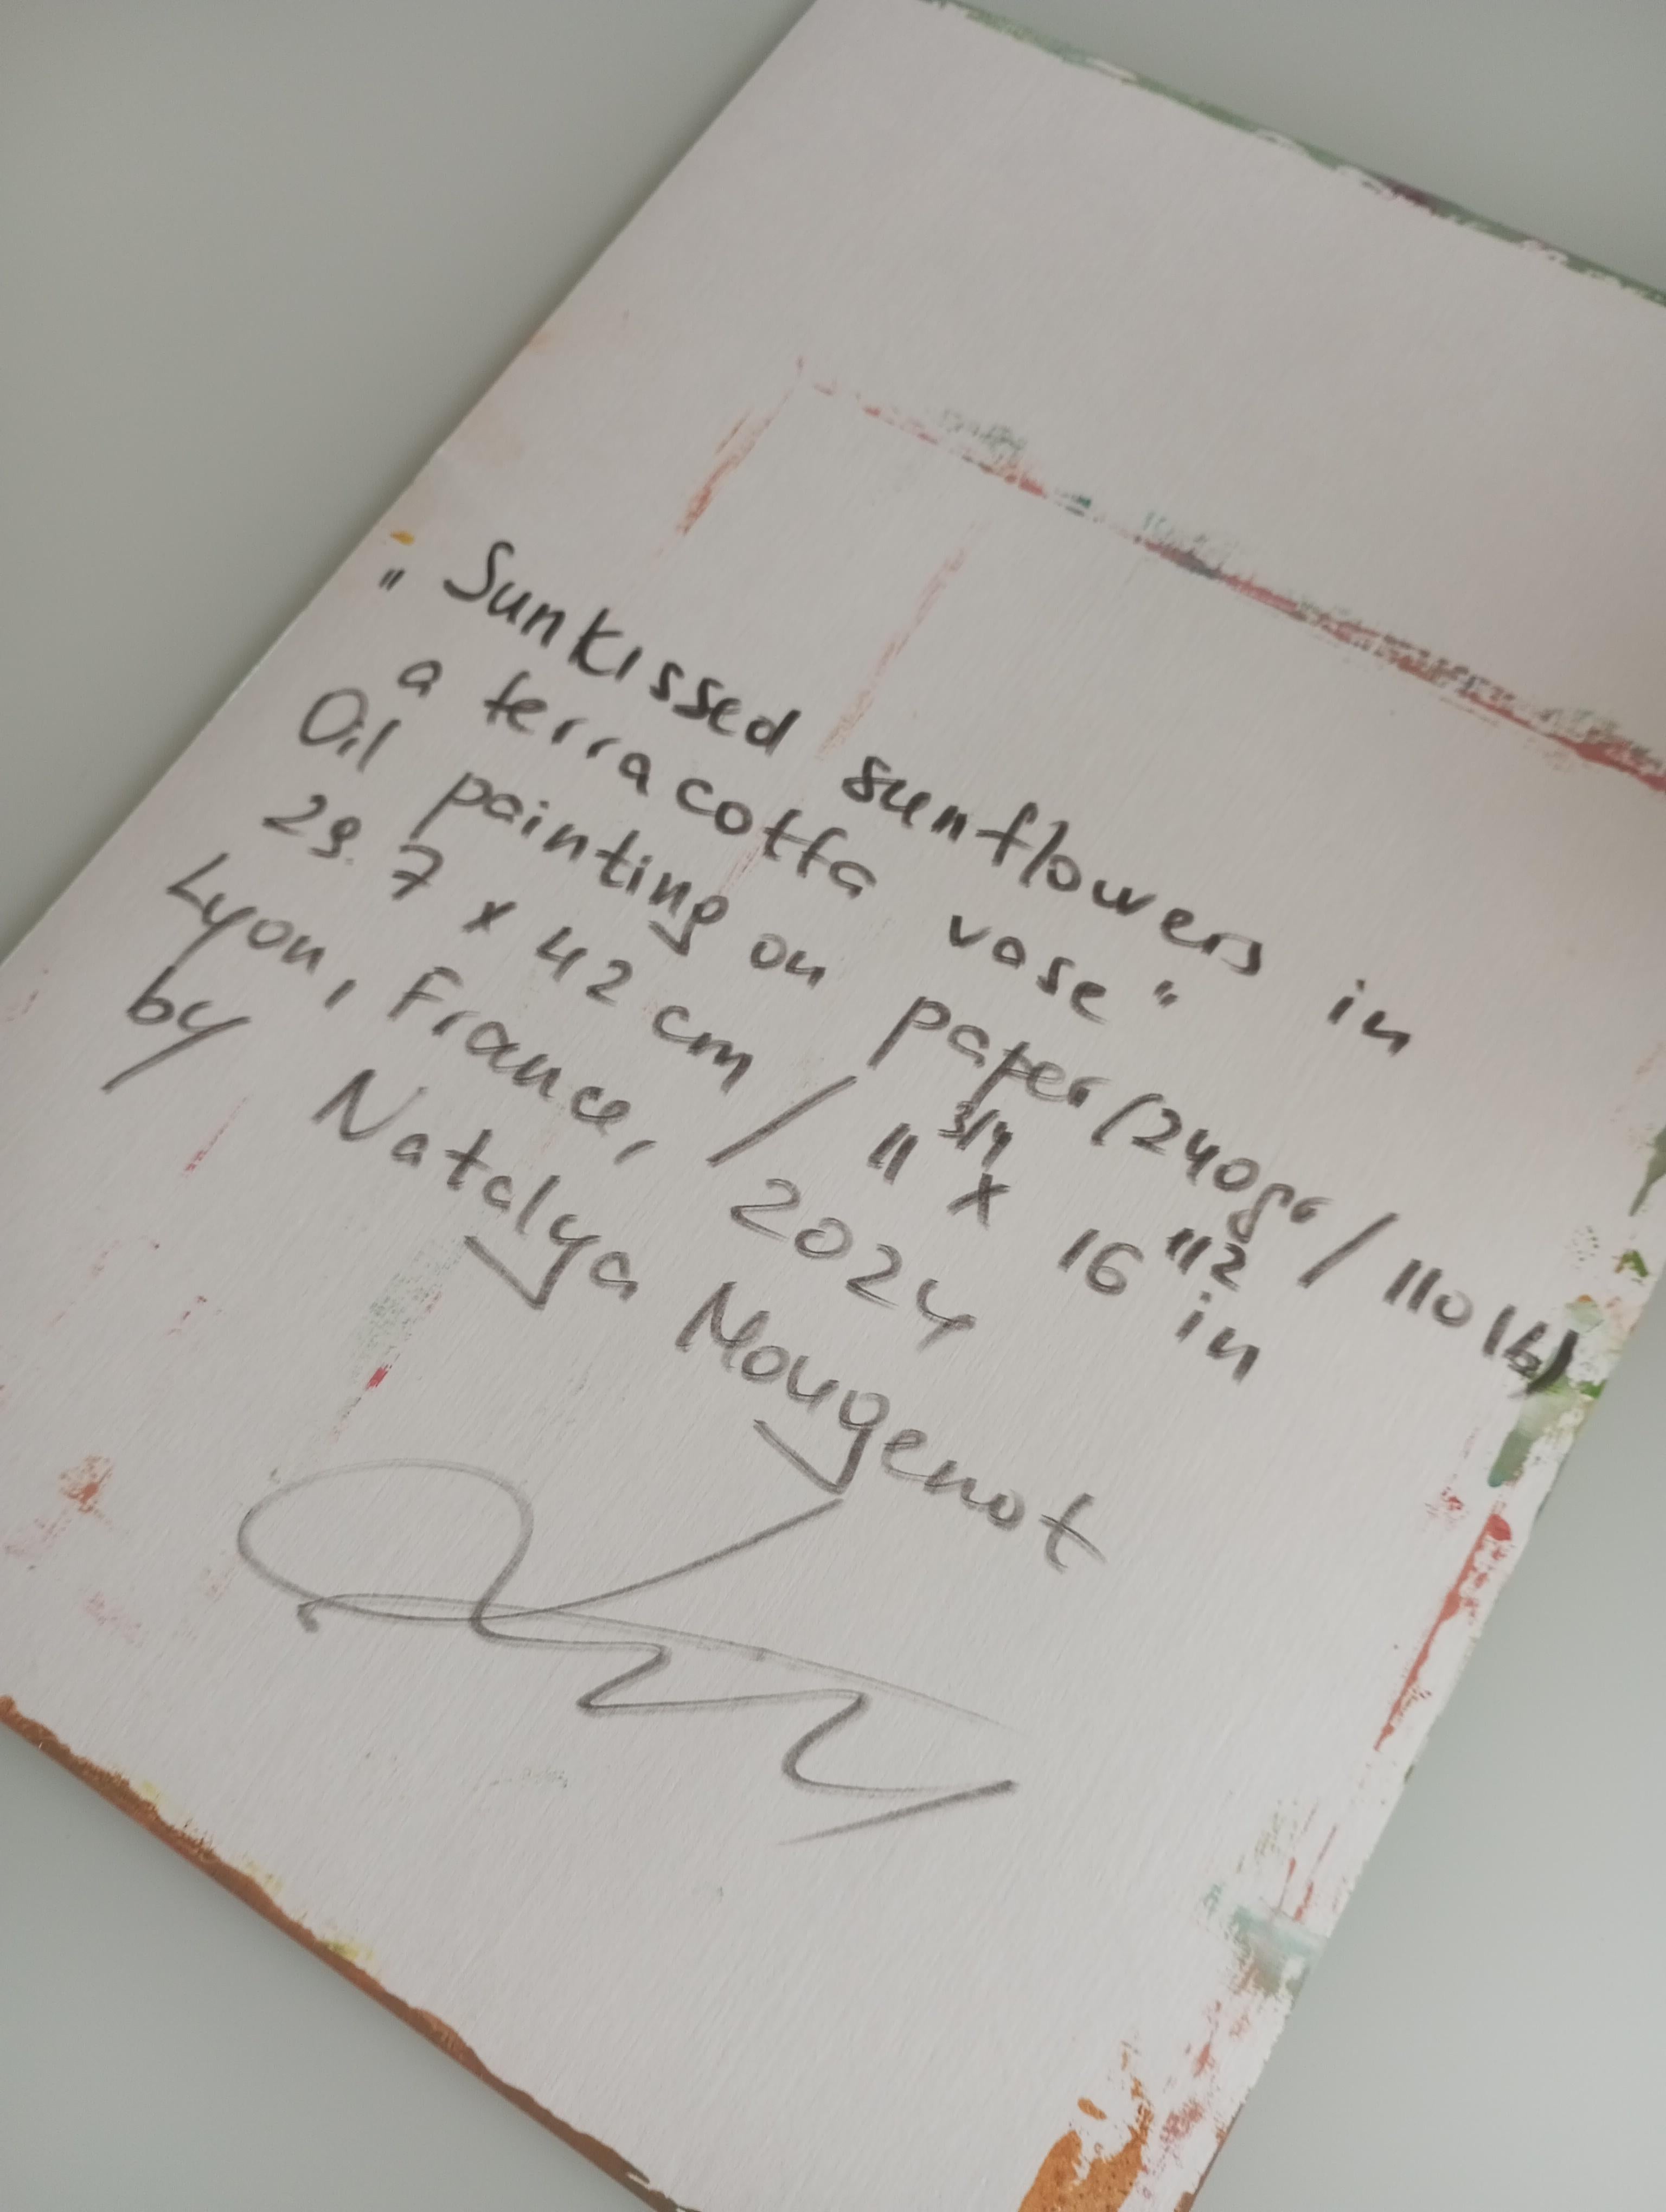 „Sunkissed sunflowers in
a terracotta vase"
Oil painting on paper (240gr/110lb)
29.7 x 42 cm / 11 3/4 x 16 1/2 in
Lyon, France, 2024
by Natalya Mougenot